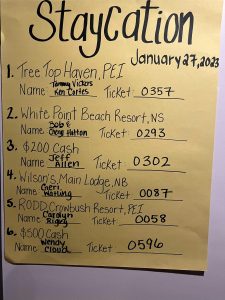 StayCation
January 27, 2023
1. Tree Top Haven, PEI
Tammy Vickers
Name Ken Cortes Ticket: 0357
2. White Point Beach Resort, NS
Bob &
Name Doug Hatton Ticket: 0293
3. $200 Cash
Name Jeff Allen Ticket: 0302
4. Wilson's, Main Lodge, NB
Name Cheri Ticket: 0087
5. RODD, Crowbush Resort, PEI
Name Carolyn Ticket: 0058
6. $500 Cash
Name Wendy Cloud Ticket: 0596